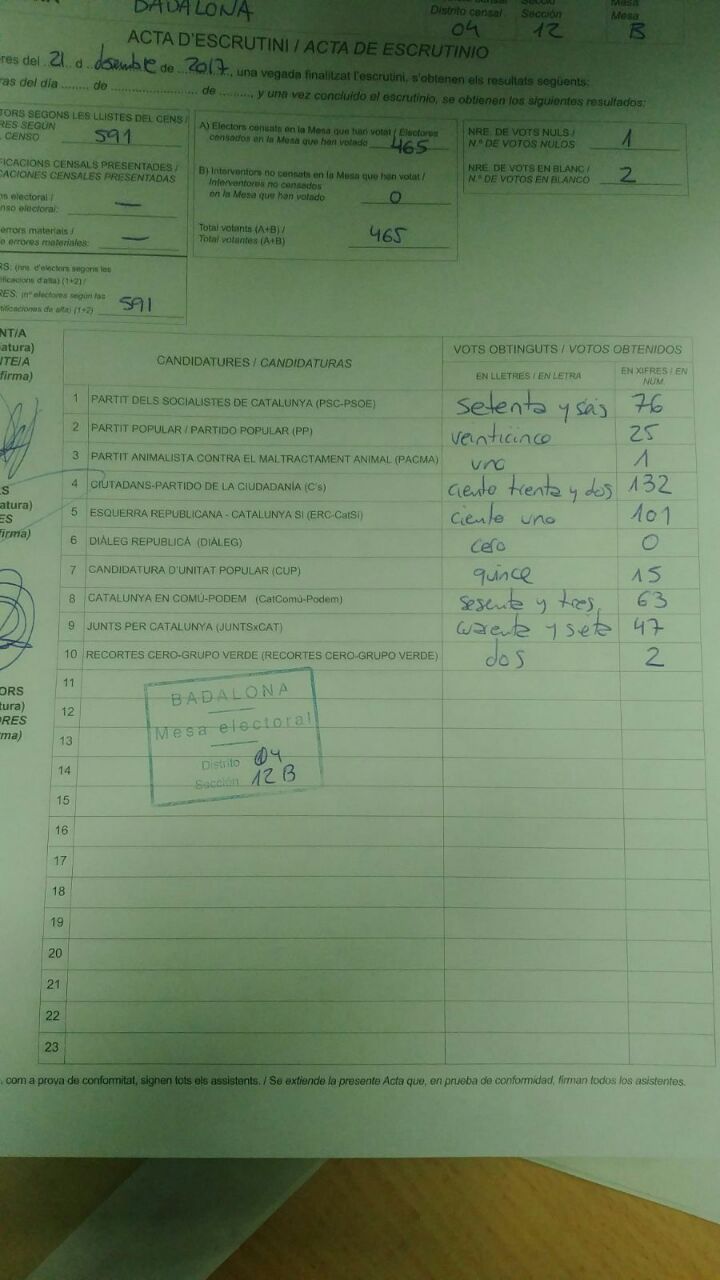 BADALONA
Distrito censal
Sección
Mesa
04 12 B
ACTA D'ESCRUTINI / ACTA DE ESCRUTINIO
res del 21 d desembre de 2017, una vegada finalitzat l'escrutini, s'obtenen els resultats següents:
ras del día ........ de ........................ de ........., y una vez concluido el escrutinio, se obtienen los siguientes resultados:
TORS SEGONS LES LLISTES DEL CENS /
RES SEGÚN
CENSO 591
FICACIONS CENSALS PRESENTADES /
CACIONES CENSALES PRESENTADAS
ns electoral /
nso electoral: —
errors materials /
e errores materiales: —
RS: (nre. d'electors segons les
ificacions d'alta) (1+2) /
RES: (nº electores según las
tificaciones de alta) (1+2) 591
A) Electors censats en la Mesa que han votat / Electores
censados en la Mesa que han votado 465
B) Interventors no censats en la Mesa que han votat /
Interventores no censados
en la Mesa que han votado 0
Total votants (A+B) /
Total votantes (A+B) 465
NRE. DE VOTS NULS /
N.º DE VOTOS NULOS 1
NRE. DE VOTS EN BLANC /
N.º DE VOTOS EN BLANCO 2
NT/A
atura)
NTE/A
firma)
S
atura)
ES
firma)
ORS
tura)
ORES
ma)
CANDIDATURES / CANDIDATURAS
VOTS OBTINGUTS / VOTOS OBTENIDOS
EN LLETRES / EN LETRA
EN XIFRES / EN
NÚM.
1 PARTIT DELS SOCIALISTES DE CATALUNYA (PSC-PSOE) setenta y seis 76
2 PARTIT POPULAR / PARTIDO POPULAR (PP) veinticinco 25
3 PARTIT ANIMALISTA CONTRA EL MALTRACTAMENT ANIMAL (PACMA) uno 1
4 CIUTADANS-PARTIDO DE LA CIUDADANÍA (C's) ciento treinta y dos 132
5 ESQUERRA REPUBLICANA - CATALUNYA SÍ (ERC-CatSí) ciento uno 101
6 DIÀLEG REPUBLICÀ (DIÀLEG) cero 0
7 CANDIDATURA D'UNITAT POPULAR (CUP) quince 15
8 CATALUNYA EN COMÚ-PODEM (CatComú-Podem) sesenta y tres 63
9 JUNTS PER CATALUNYA (JUNTSxCAT) cuarenta y siete 47
10 RECORTES CERO-GRUPO VERDE (RECORTES CERO-GRUPO VERDE) dos 2
11
12
13
14
15
16
17
18
19
20
21
22
23
BADALONA
Mesa electoral
Distrito 04
Sección 12 B
, com a prova de conformitat, signen tots els assistents. / Se extiende la presente Acta que, en prueba de conformidad, firman todos los asistentes.